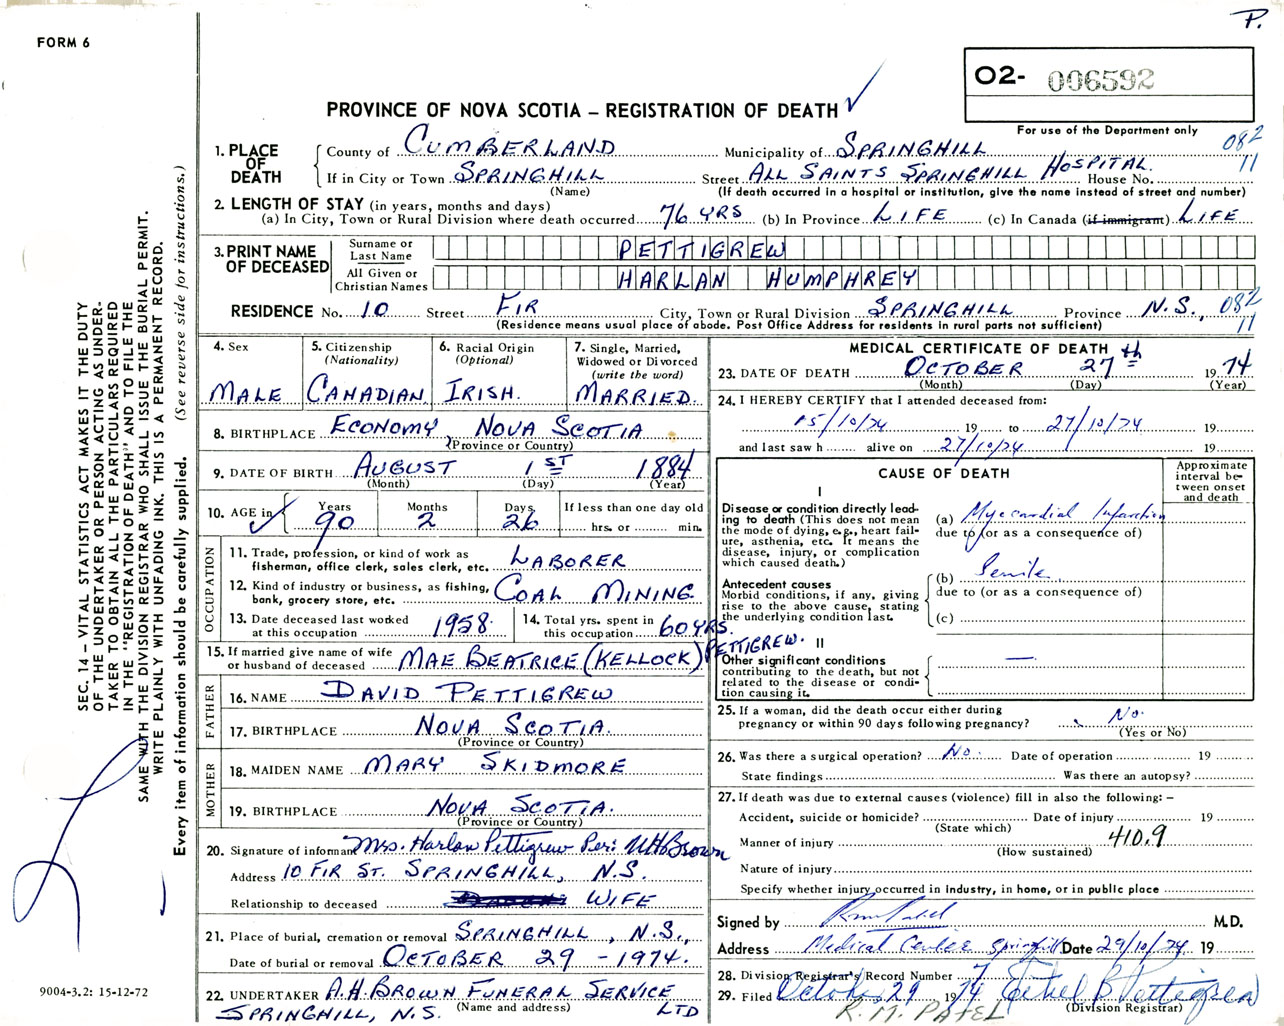 P.
FORM 6
O2- 006592
For use of the Department only
PROVINCE OF NOVA SCOTIA – REGISTRATION OF DEATH
082
11
1. PLACE OF DEATH
County of CUMBERLAND Municipality of SPRINGHILL
If in City or Town SPRINGHILL Street ALL SAINTS SPRINGHILL HOSPITAL House No.
(Name) (If death occurred in a hospital or institution, give the name instead of street and number)
2. LENGTH OF STAY (in years, months and days)
(a) In City, Town or Rural Division where death occurred 76 YRS (b) In Province LIFE (c) In Canada (if immigrant) LIFE
3. PRINT NAME OF DECEASED
Surname or Last Name PETTIGREW
All Given or Christian Names HARLAN HUMPHREY
RESIDENCE No. 10 Street FIR City, Town or Rural Division SPRINGHILL Province N.S., 082
11
(Residence means usual place of abode. Post Office Address for residents in rural parts not sufficient)
4. Sex MALE
5. Citizenship (Nationality) CANADIAN
6. Racial Origin (Optional) IRISH.
7. Single, Married, Widowed or Divorced (write the word) MARRIED.
8. BIRTHPLACE ECONOMY NOVA SCOTIA
(Province or Country)
9. DATE OF BIRTH AUGUST 1ST 1884
(Month) (Day) (Year)
10. AGE in Years 90 Months 2 Days 26 If less than one day old hrs. or min.
OCCUPATION
11. Trade, profession, or kind of work as fisherman, office clerk, sales clerk, etc. LABORER
12. Kind of industry or business, as fishing, bank, grocery store, etc. COAL MINING
13. Date deceased last worked at this occupation 1958.
14. Total yrs. spent in this occupation 60 YRS.
15. If married give name of wife or husband of deceased MAE BEATRICE (KELLOCK) PETTIGREW.
FATHER
16. NAME DAVID PETTIGREW
17. BIRTHPLACE NOVA SCOTIA.
(Province or Country)
MOTHER
18. MAIDEN NAME MARY SKIDMORE
19. BIRTHPLACE NOVA SCOTIA.
(Province or Country)
20. Signature of informant Mrs. Harlan Pettigrew Per: HHBrown
Address 10 FIR ST. SPRINGHILL, N.S.
Relationship to deceased WIFE
21. Place of burial, cremation or removal SPRINGHILL, N.S.,
Date of burial or removal OCTOBER 29 - 1974.
22. UNDERTAKER A.H BROWN FUNERAL SERVICE LTD
(Name and address)
SPRINGHILL, N.S.
MEDICAL CERTIFICATE OF DEATH
23. DATE OF DEATH OCTOBER 27th 1974
(Month) (Day) (Year)
24. I HEREBY CERTIFY that I attended deceased from:
15/10/74 19 to 27/10/74 19
and last saw h alive on 27/10/74 19
CAUSE OF DEATH
Approximate interval between onset and death
I
Disease or condition directly leading to death (This does not mean the mode of dying, e.g., heart failure, asthenia, etc. It means the disease, injury, or complication which caused death.)
(a) Myocardial Infarction
due to (or as a consequence of)
Antecedent causes
Morbid conditions, if any, giving rise to the above cause, stating the underlying condition last.
(b) Senile
due to (or as a consequence of)
(c)
II
Other significant conditions
contributing to the death, but not related to the disease or condition causing it. —
25. If a woman, did the death occur either during pregnancy or within 90 days following pregnancy? No.
(Yes or No)
26. Was there a surgical operation? No. Date of operation 19
State findings Was there an autopsy?
27. If death was due to external causes (violence) fill in also the following: –
Accident, suicide or homicide? Date of injury 19
(State which)
Manner of injury 410.9
(How sustained)
Nature of injury
Specify whether injury occurred in industry, in home, or in public place
Signed by M.D.
Address Medical Centre Springhill Date 29/10/74 19
28. Division Registrar's Record Number 7
29. Filed October 29 1974 Ethel B Pettigrew
(Division Registrar)
R. M. PATEL
SEC. 14 – VITAL STATISTICS ACT MAKES IT THE DUTY
OF THE UNDERTAKER OR PERSON ACTING AS UNDER-
TAKER TO OBTAIN ALL THE PARTICULARS REQUIRED
IN THE "REGISTRATION OF DEATH" AND TO FILE THE
SAME WITH THE DIVISION REGISTRAR WHO SHALL ISSUE THE BURIAL PERMIT.
WRITE PLAINLY WITH UNFADING INK. THIS IS A PERMANENT RECORD.
Every item of information should be carefully supplied. (See reverse side for instructions.)
9004-3.2: 15-12-72